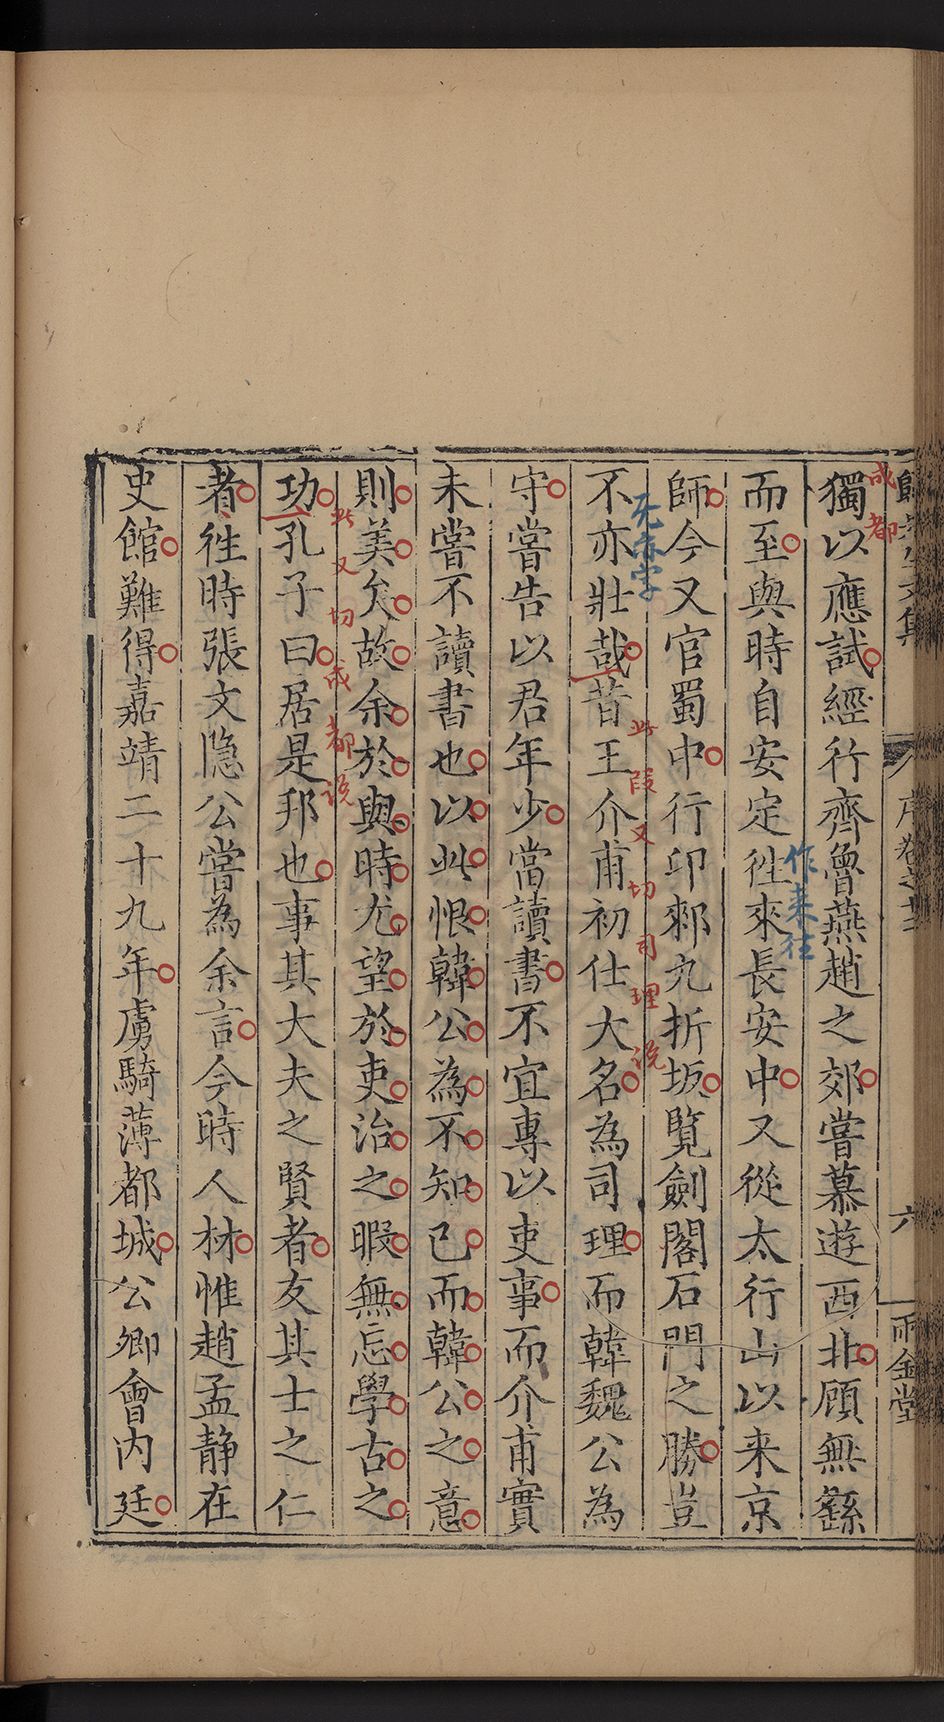 成都
獨以應試經行齊魯燕趙之郊嘗慕遊西北顧無繇
而至與時自安定徃來長安中又從太行山以来京
作来往
師今又官蜀中行卭郲九折坂覽劍閣石門之勝豈
无亦字
不亦壯哉昔王介甫初仕大名為司理而韓魏公為
此段又切司理说
守嘗告以君年少當讀書不宜專以吏事而介甫實
未嘗不讀書也以此恨韓公為不知已而韓公之意
則美矣故余於與時尤望於吏治之暇無忘學古之
此又切成都说
功孔子曰居是邦也事其大夫之賢者友其士之仁
者徃時張文隐公嘗為余言今時人材惟趙孟静在
史館難得嘉靖二十九年虜騎薄都城公卿會内廷
六